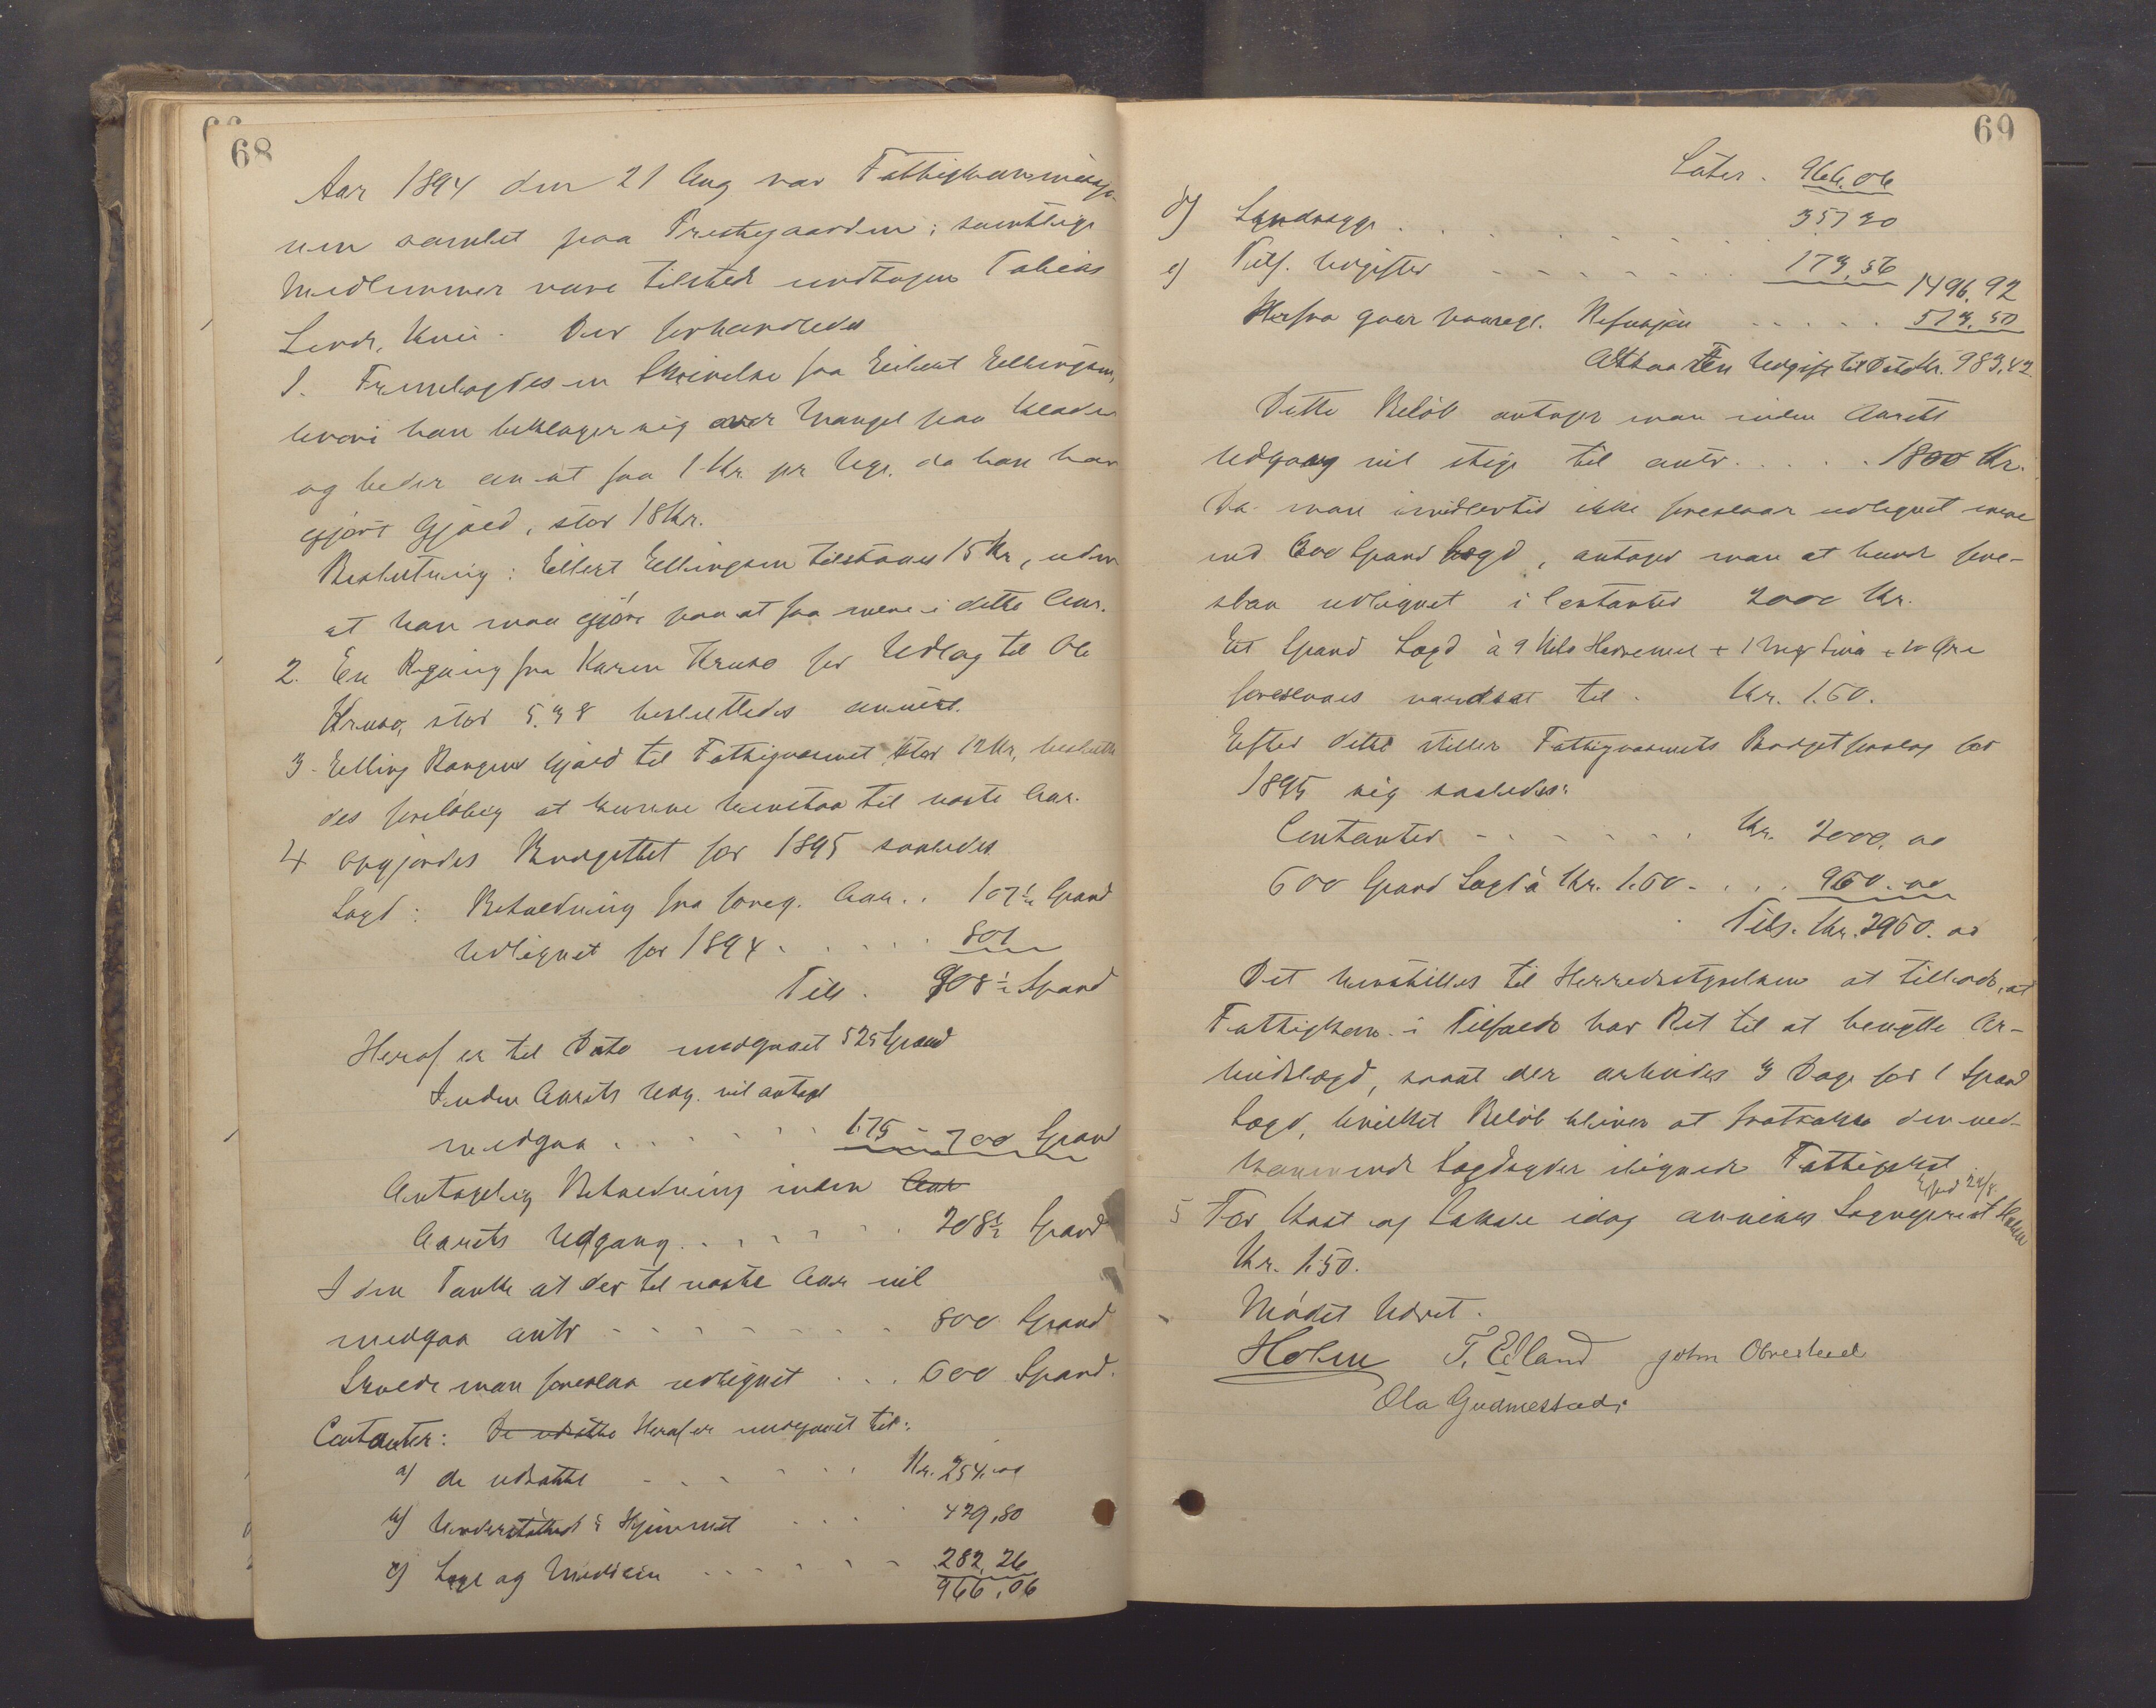 68
Aar 1894 den 21 Aug var Fattigkommissjo-
nen samlet paa Prestegaarden; samtlige
Medlemmer vare tilstede undtagen Tobias
Der forhandledes
1. Fremlagdes en Skrivelse fra Eilert Ellingsen,
hvori han beklager sig over Mangel paa Klæder
og beder om at faa 1 Kr. pr Uge. da han har
gjort Gjæld, stor 18 Kr.
Beslutning: Eilert Ellingsen tilstaaes 15 Kr, uden
at han maa gjøre paa at faa mere i dette Aar.
2. En Regning fra Karen Kruso for Udlag til Ole
Kruso, stor 5.38 besluttedes anvist.
3. Elling Gjæld til Fattigvæsenet stor 12 Kr, beslutte-
des foreløbig at kunne henstaa til næste Aar.
4 Opgjordes Budgettet for 1895 saaledes
Lægd: Beholdning fra foreg. Aar.. 107½ Spand
Udlignet for 1894 . . . . . 801
Tils. 908½ Spand
Heraf er til Dato medgaaet 525 Spand
Inden Aarets Udg. vil antagl
medgaa . . . . . . 175 - 700 Spand
Antagelig Beholdning inden Aar
Aarets Udgang. . . . . . 208½ Spand
I den Tanke at der til næste Aar vil
medgaa antr - - - - - - - 800 Spand
Skulde man foreslaa udlignet . . . 600 Spand.
Contanter: De udsatte Heraf er medgaaet til:
a) de udsatte - - - - - Kr. 254.00
b) Understøttede i Hjemmet . . . 429,80
c) Læge og Medicin . . . . . . 282,26
966,06
69
Lateris. 966,06
d) Sindssyge . . . . . . . . 357 30
e) Tilf. Udgifter - - - - - - - 173,56 1496,92
Herfra gaar Refusjon . . . . . 513.50
Altsaa Ren Udgift til Dato Kr. 983,42
Dette Beløb antages man inden Aarets
Udgang vil stige til antr. . . . . 1800 Kr.
Da man imidlertid ikke foreslaar udlignet mere
end 600 Spand Lægd, antager man at burde fore-
slaa udlignet i Contanter 2000 Kr.
Et Spand Lægd à 9 Kilo Havremel + 1 + 10 Øre
foreslaaes værdsat til . Kr. 1.60.
Efter dette stiller Fattigvæsenets Budgetforslag for
1895 sig saaledes:
Contanter - - - - - - - Kr. 2000,00
600 Spand Lægd à Kr. 1.60 - . . . 960.00
Tils. Kr. 2960.00
Det henstilles til Herredsstyrelsen at tillade, at
Fattigkom. i Tilfælde har Ret til at benytte Ar-
beidslægd, saaat der arbeides 3 Dage for 1 Spand
Lægd, hvilket Beløb bliver at fratrække den ved-
kommende Lægdsyder ilignede Fattigskat.
5 For Kost og Lokale idag anvises Sogneprest Holm
Kr. 1.50.
Mødet hævet.
Holm T. Edland John Obrestad
Ola Gudmestad.